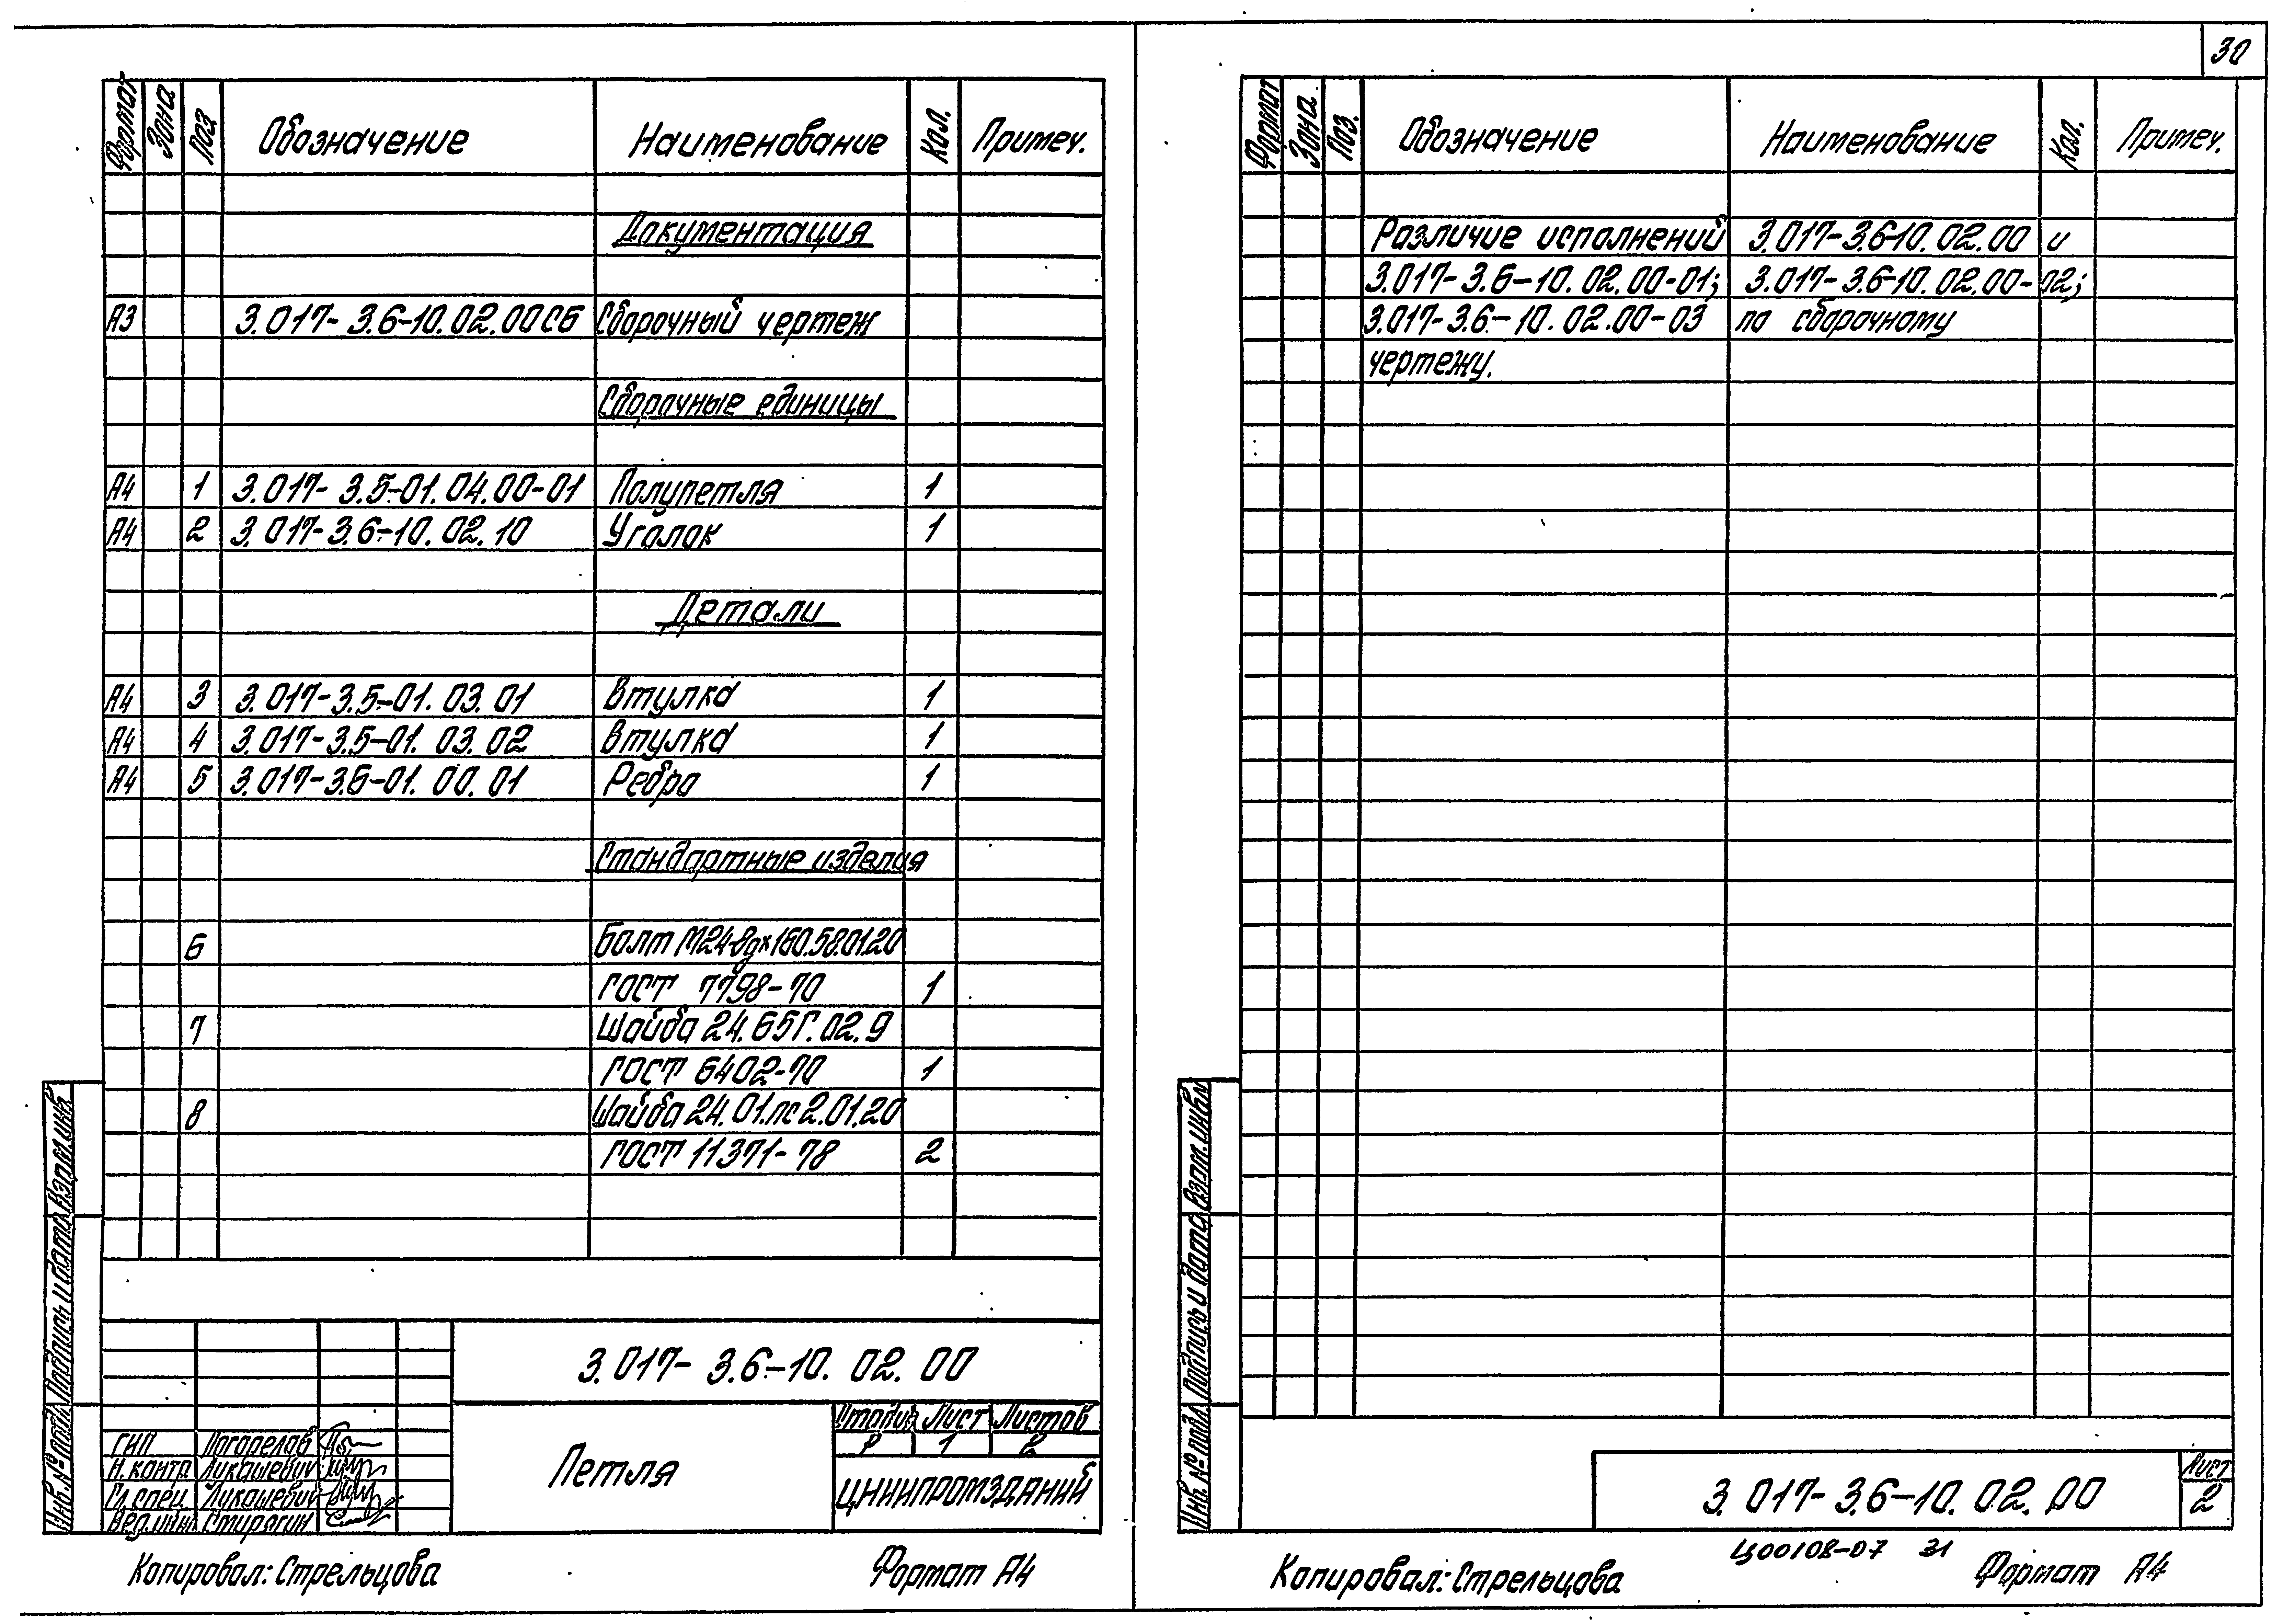 30
Формат Зона Поз. Обозначение Наименование Кол. Примеч.
Документация
А3 3.017-3.6-10.02.00СБ Сборочный чертеж
Сборочные единицы
А4 1 3.017-3.5-01.04.00-01 Полупетля 1
А4 2 3.017-3.6-10.02.10 Уголок 1
Детали
А4 3 3.017-3.5-01.03.01 Втулка 1
А4 4 3.017-3.5-01.03.02 Втулка 1
А4 5 3.017-3.6-01.00.01 Ребро 1
Стандартные изделия
6 Болт М24-8gх160.58.01.20
ГОСТ 7798-70 1
7 Шайба 24.65Г.02.9
ГОСТ 6402-70 1
8 Шайба 24.01.пс2.01.20
ГОСТ 11371-78 2
Взам.инв.
Подпись и дата
Инв.№ подл.
3.017-3.6-10.02.00
Стадия Лист Листов
Р 1 2
Петля
ЦНИИПРОМЗДАНИЙ
ГИП Погорелов
Н.контр Лукашевич
Гл.спец. Лукашевич
Вед.инж Стирягин
Копировал: Стрельцова Формат А4
Формат Зона Поз. Обозначение Наименование Кол. Примеч.
Различие исполнений 3.017-3.6-10.02.00 и
3.017-3.6-10.02.00-01; 3.017-3.6-10.02.00-02;
3.017-3.6-10.02.00-03 по сборочному
чертежу.
Взам.инв.№
Подпись и дата
Инв.№ подл.
3.017-3.6-10.02.00
Лист
2
Ц00108-07 31
Копировал: Стрельцова Формат А4